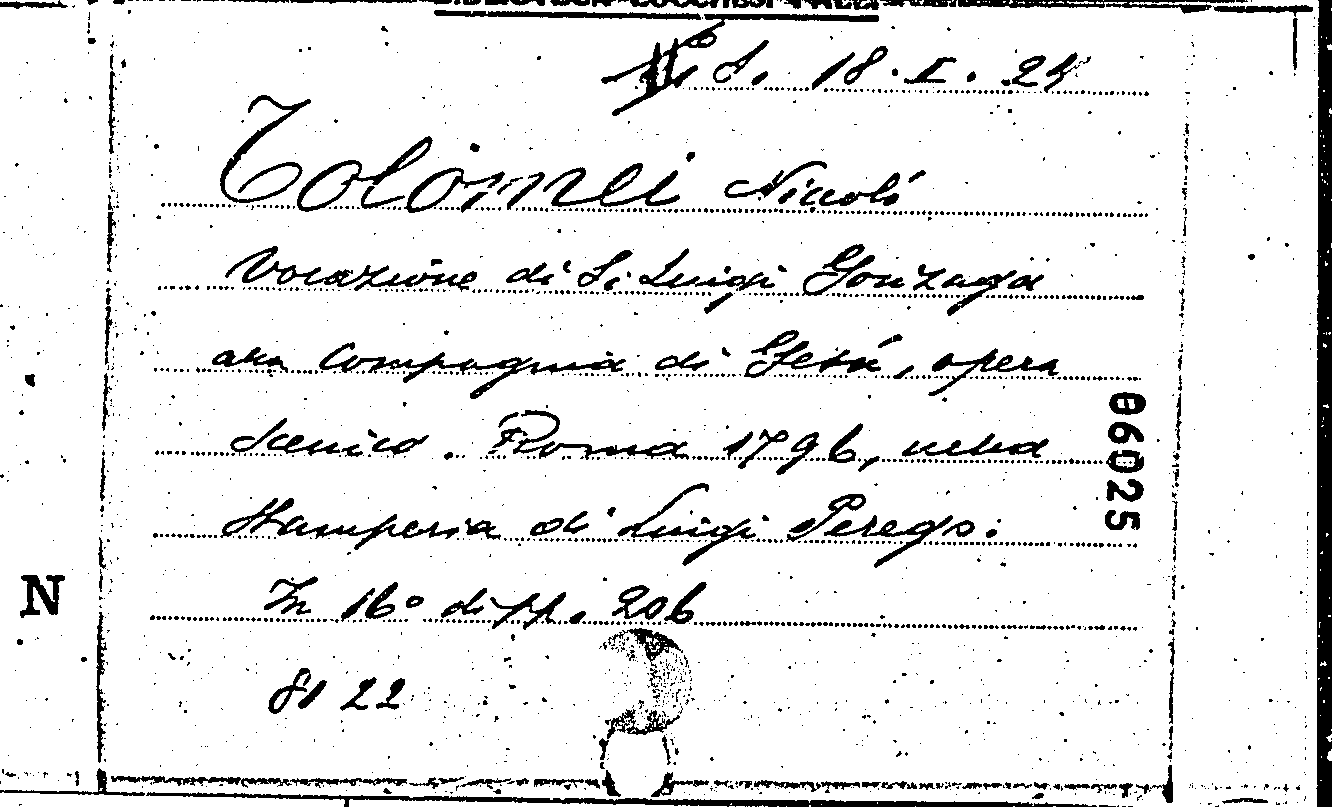 S. 18.I.24
Tolomei Niccolò
Vocazione di S. Luigi Gonzaga
alla Compagnia di Gesù, opera
scenica. Roma 1796, nella
Stamperia di Luigi Perego.
In 16° di pp. 206
8122
06025
N